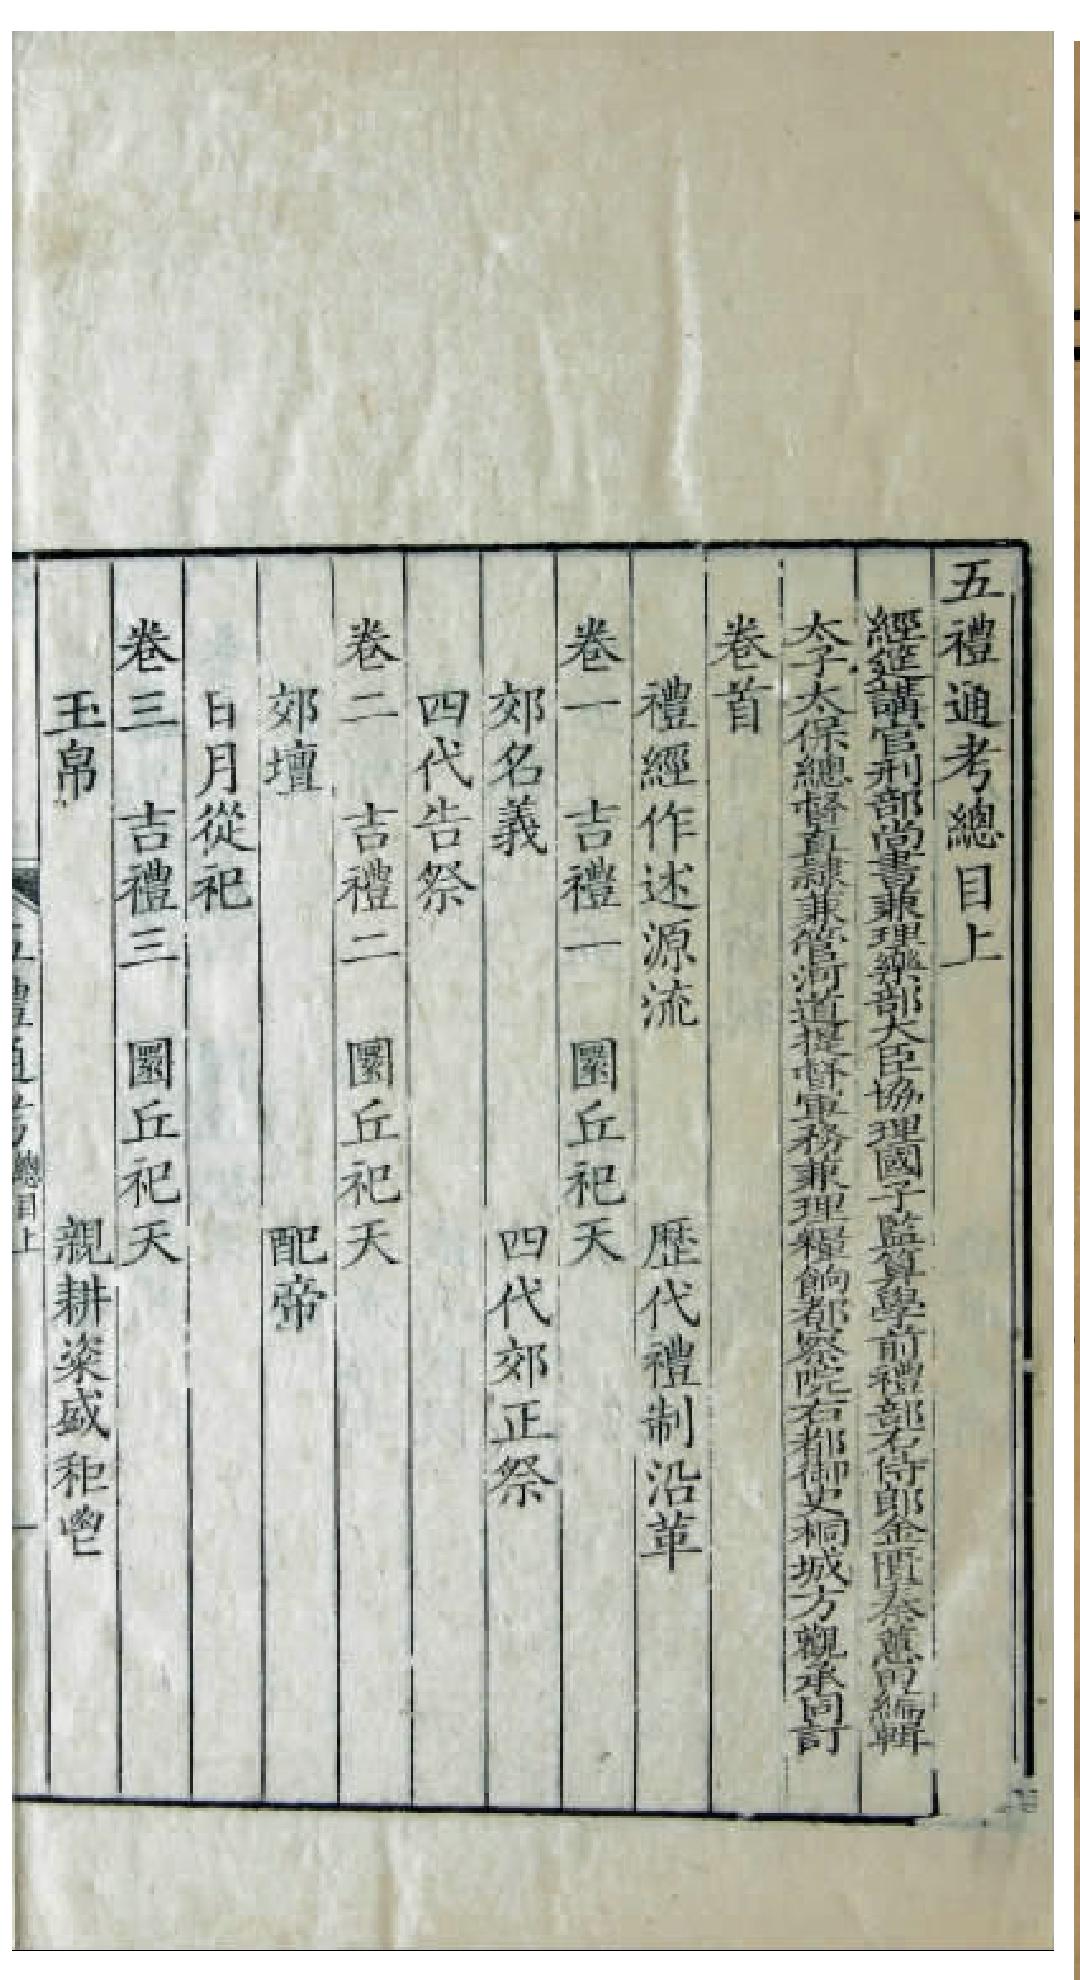 五禮通考總目上
經筵講官刑部尚書兼理樂部大臣協理國子監算學前禮部右侍郎金匱秦蕙田編輯
太子太保總督直隸兼管河道提督軍務兼理糧餉都察院右都御史桐城方觀承同訂
卷首
禮經作述源流 歷代禮制沿革
卷一 吉禮一 圜丘祀天
郊名義 四代郊正祭
四代告祭
卷二 吉禮二 圜丘祀天
郊壇 配帝
日月從祀
卷三 吉禮三 圜丘祀天
玉帛 親耕粢盛秬鬯
五禮通考 總目上